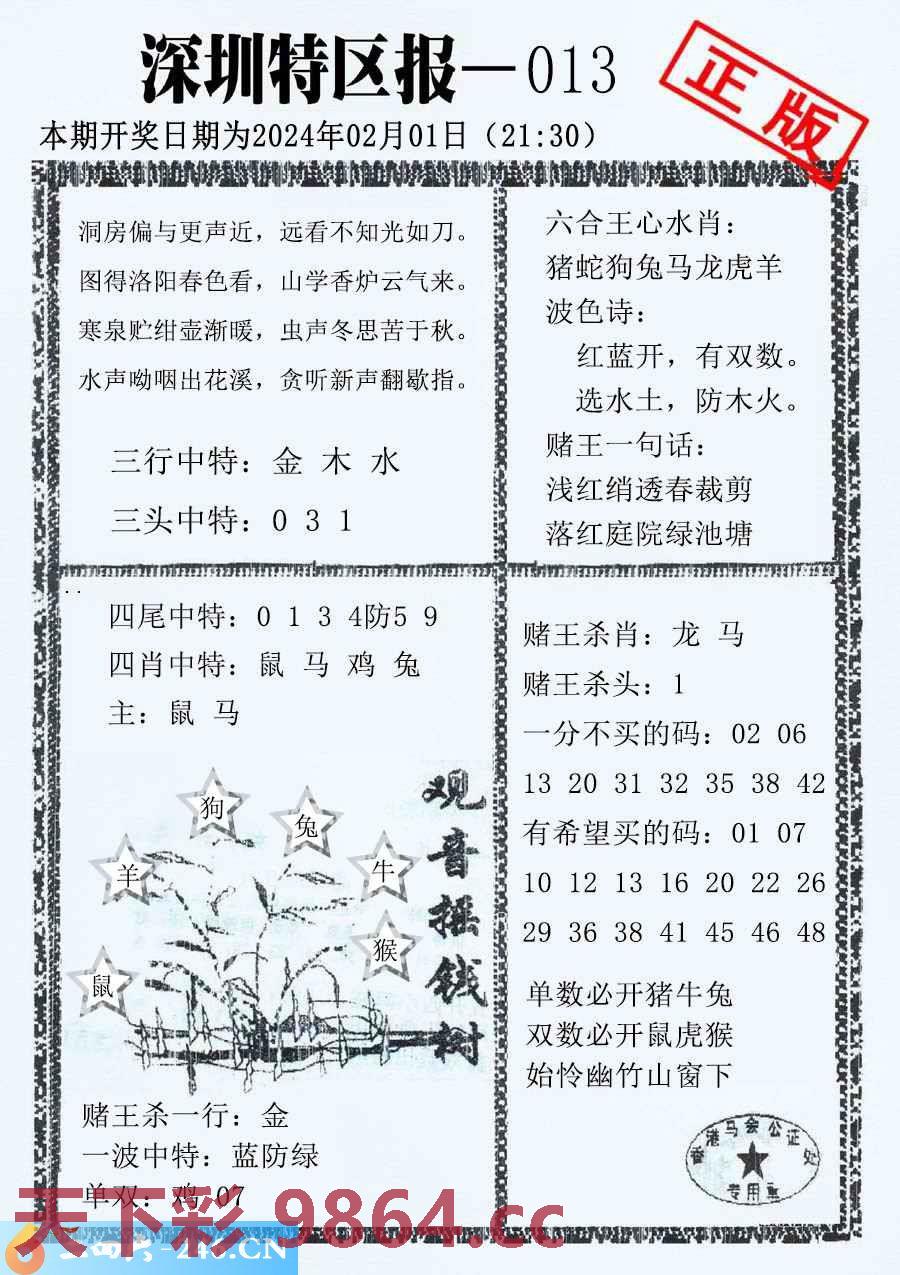 深圳特区报—013
正版
本期开奖日期为2024年02月01日（21:30）
洞房偏与更声近，远看不知光如刀。
图得洛阳春色看，山学香炉云气来。
寒泉贮绀壶渐暖，虫声冬思苦于秋。
水声呦咽出花溪，贪听新声翻歇指。
三行中特：金 木 水
三头中特：0 3 1
六合王心水肖：
猪蛇狗兔马龙虎羊
波色诗：
红蓝开，有双数。
选水土，防木火。
赌王一句话：
浅红绡透春裁剪
落红庭院绿池塘
四尾中特：0 1 3 4防5 9
四肖中特：鼠 马 鸡 兔
主：鼠 马
狗
兔
羊
牛
猴
鼠
观音摇钱树
赌王杀一行：金
一波中特：蓝防绿
单双：鸡 07
赌王杀肖：龙 马
赌王杀头：1
一分不买的码：02 06
13 20 31 32 35 38 42
有希望买的码：01 07
10 12 13 16 20 22 26
29 36 38 41 45 46 48
单数必开猪牛兔
双数必开鼠虎猴
始怜幽竹山窗下
香港马会公证处
专用章
天下彩 9864.cc
-246.CN